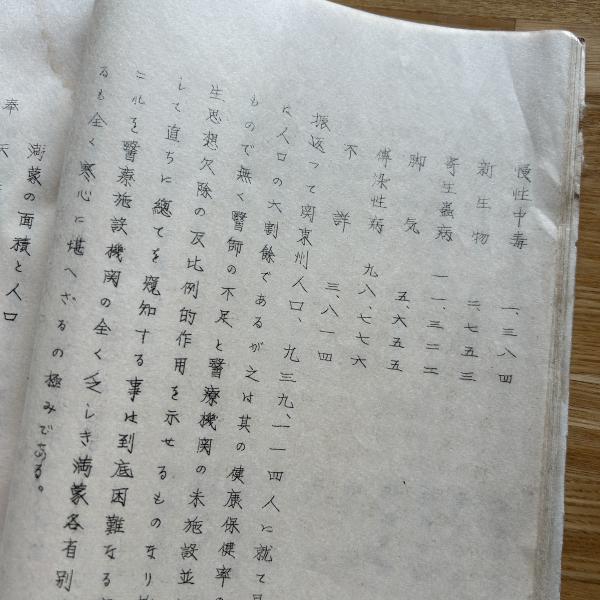 慢性中毒　一、三八四
新生物　二、七五三
寄生蟲病　一一、三二二
脚気　五、六五五
傳染性病　九八、七七六
不詳　三、八一四
振返つて関東州人口、九三九、一一四人に就て
に人口の大割餘であるが之は其の健康保健率の
もので無く醫師の不足と醫療機関の未施設並
生思想欠除の反比例的作用を示せるものなり
して直ちに總てを窺知する事は到底困難なる
これを醫療施設機関の全く乏しき満蒙各有別
るも全く寒心に堪へざるの極みである。
満蒙の面積と人口
奉天